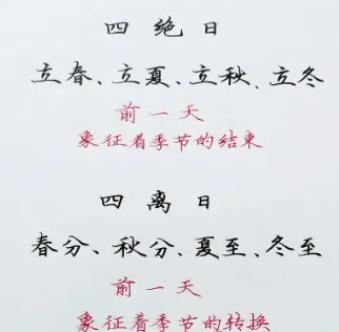 四绝日
立春、立夏、立秋、立冬
前一天
象征着季节的结束
四离日
春分、秋分、夏至、冬至
前一天
象征着季节的转换